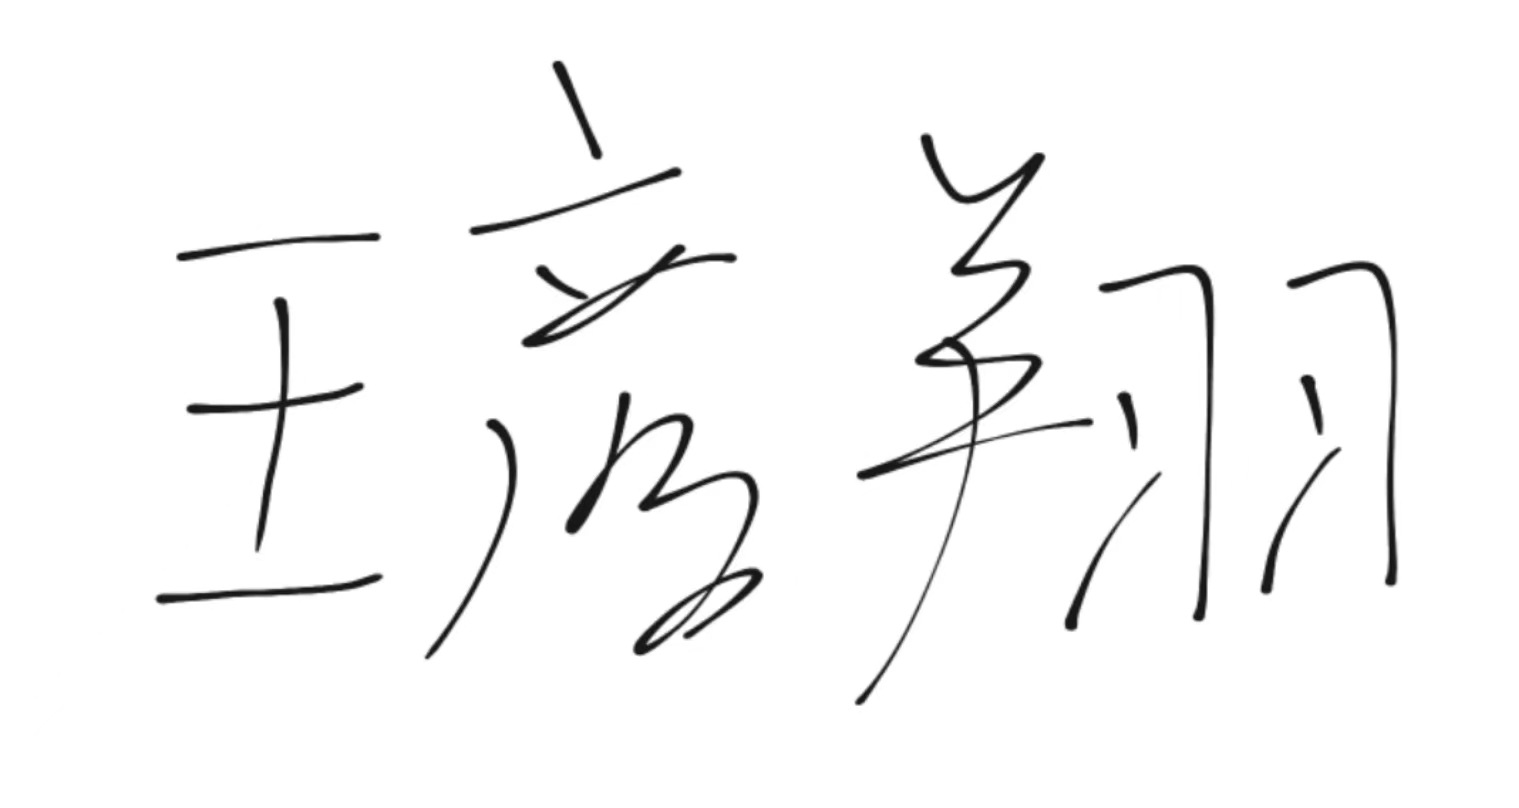 王彦翔